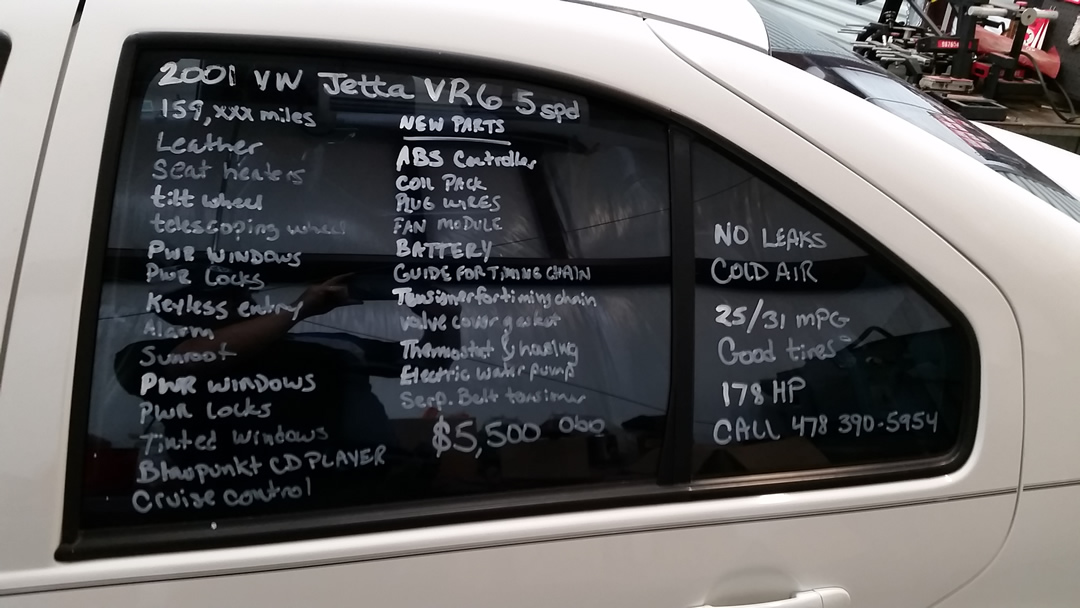 2001 VW Jetta VR6 5 spd
159,xxx miles
Leather
Seat heaters
tilt wheel
telescoping wheel
PWR WINDOWS
PWR Locks
Keyless entry
Alarm
Sunroof
PWR WINDOWS
PWR LOCKS
Tinted Windows
Blaupunkt CD PLAYER
Cruise control
NEW PARTS
ABS Controller
COIL PACK
PLUG WIRES
FAN MODULE
BATTERY
GUIDE FOR TIMING CHAIN
Tensioner for timing chain
valve cover gasket
Thermostat & housing
Electric water pump
Serp. Belt tensioner
$5,500 obo
NO LEAKS
COLD AIR
25/31 MPG
Good tires
178 HP
CALL 478 390-5954